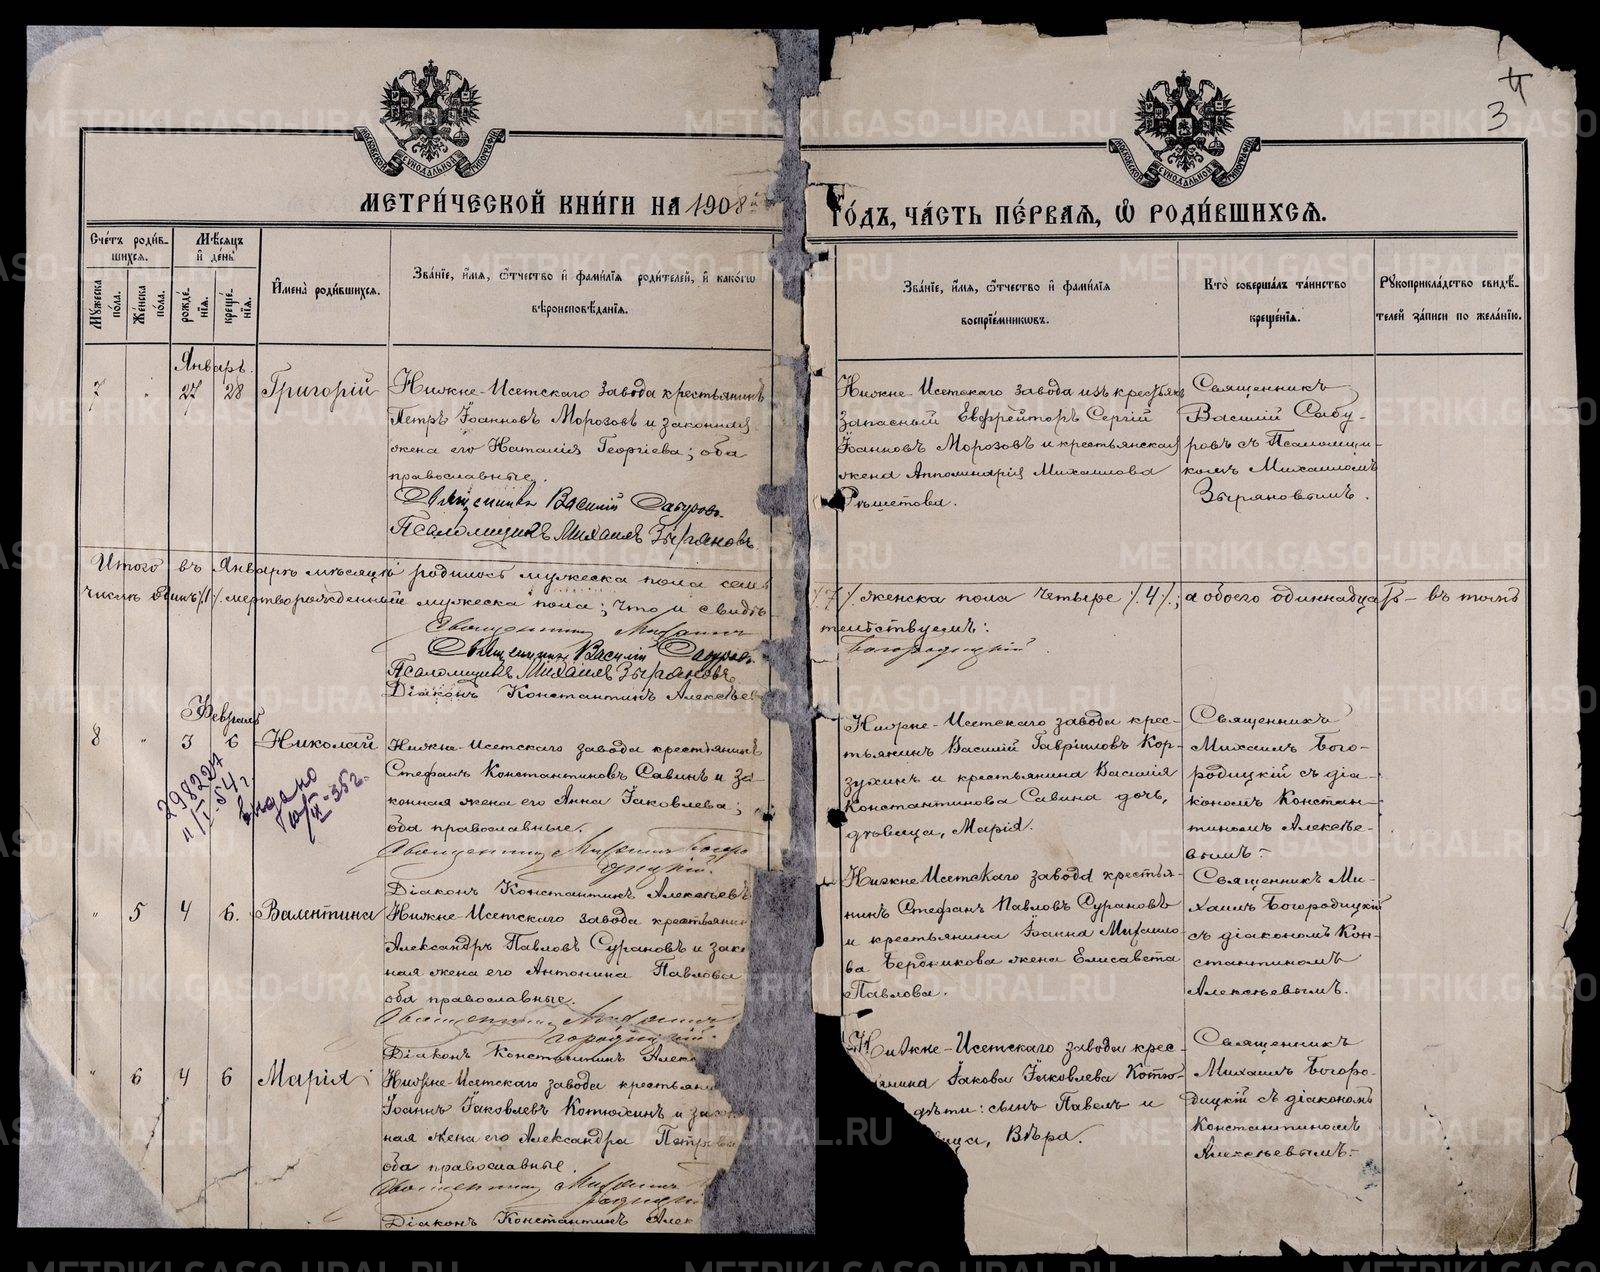 4
3
МОСКОВСКОЙ СѴНОДАЛЬНОЙ ТИПОГРАФІИ
МОСКОВСКОЙ СѴНОДАЛЬНОЙ ТИПОГРАФІИ
МЕТРИ́ЧЕСКОЙ КНИ́ГИ НА 1908й
ГО́ДЪ, ЧА́СТЬ ПЕ́РВАЯ, Ѽ РОДИ́ВШИХСЯ.
Сче́тъ роди́в-
шихся.
Мужеска по́ла.
Же́нска по́ла.
Мѣ́сяцъ
и де́нь
рожде́-
нія.
креще́-
нія.
Имена̀ роди́вшихся.
Зва́ніе, и́мя, ѻ́тчество и фами́лія роди́телей, и како́гѡ
вѣроисповѣ́данія.
Зва́ніе, и́мя, ѻ́тчество и фами́лія
воспріе́мникѡвъ.
Кто̀ соверша́лъ та́инство
креще́нія.
Рукоприкла́дство свидѣ́-
телей за́писи по жела́нію.
Январь.
7 " 27 28 Григорій
Нижне-Исетскаго завода крестьянинъ
Петръ Іоанновъ Морозовъ и законная
жена его Наталія Георгіева; оба
православные.
Священникъ Василій Сабуровъ
Псаломщикъ Михаилъ Зыряновъ.
Нижне-Исетскаго завода изъ крестьянъ
запасный Ефрейторъ Сергій
Іоанновъ Морозовъ и крестьянская
жена Апполинарія Михаилова
Рѣшетова.
Священникъ
Василій Сабу-
ровъ съ Псаломщи-
комъ Михаиломъ
Зыряновымъ.
Итого въ Январѣ мѣсяцѣ родилось мужеска пола семь
./.7./. женска пола четыре ./.4./.; а обоего одиннадцать - въ томъ
числѣ одинъ /.1./. мертворожденный мужеска пола; что и свидѣ-
тельствуемъ:
Священникъ Михаилъ
Богородицкій.
Священникъ Василій Сабуровъ
Псаломщикъ Михаилъ Зыряновъ
Діаконъ Константинъ Алексѣевъ
Февраль
8 " 3 6 Николай
298227
11/I-54 г.
Выдано
10/IX-35 г.
Нижне-Исетскаго завода крестьянинъ
Стефанъ Константиновъ Савинъ и за-
конная жена его Анна Іаковлева;
оба православные.
Священникъ Михаилъ Богоро-
дицкій.
Діаконъ Константинъ Алексѣевъ
Нижне-Исетскаго завода крес-
тьянинъ Василій Гавріиловъ Кор-
зухинъ и крестьянина Василія
Константинова Савина дочь,
дѣвица, Марія.
Священникъ
Михаилъ Бого-
родицкій съ діа-
кономъ Констан-
тиномъ Алексѣе-
вымъ-
" 5 4 6. Валентина
Нижне-Исетскаго завода крестьянин
Александръ Павловъ Сурановъ и зако
ная жена его Антонина Павлова
оба православные.
Священникъ Михаилъ
городицкій.
Діаконъ Константинъ Алекс
Нижне Исетскаго завода крестья-
нинъ Стефанъ Павловъ Сурановъ
и крестьянина Іоанна Михаило-
ва Бердникова жена Елисавета
Павлова.
Священникъ Ми-
хаилъ Богородицкій
съ діакономъ Кон-
стантиномъ
Алексѣевымъ.
" 6 4 6 Марія
Нижне-Исетскаго завода крестьяни
Іоаннъ Іаковлевъ Котюхинъ и закон
ная жена его Александра Петрова
оба православные.
Священникъ Михаилъ
родицкій
Діаконъ Константинъ Алек
Нижне-Исетскаго завода крес-
янина Іакова Іаковлева Котю-
дѣти: сынъ Павелъ и
вица, Вѣра.
Священникъ
Михаилъ Богоро-
дицкій съ діакономъ
Константиномъ
Алексѣевымъ.-
METRIKI.GASO-URAL.RU